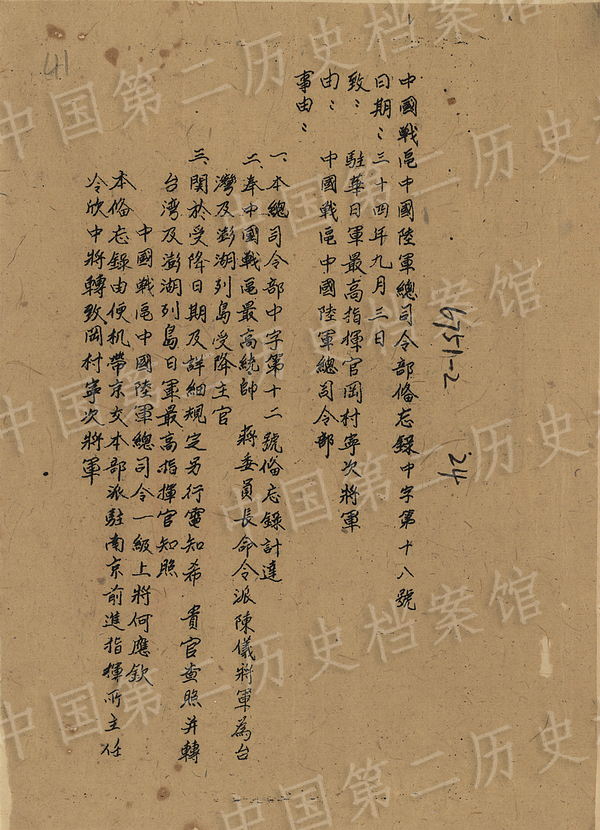 中國戰區中國陸軍總司令部俻忘錄中字第十八號
日期：三十四年九月三日
致：駐華日軍最高指揮官岡村寧次將軍
由：中國戰區中國陸軍總司令部
事由：
一、本總司令部中字第十二號俻忘錄計達
二、奉中國戰區最高統帥 蔣委員長命令派陳儀將軍為台
灣及澎湖列島受降主官
三、關於受降日期及詳細規定另行電知希 貴官查照并轉
台湾及澎湖列島日軍最高指揮官知照
中國戰區中國陸軍總司令一級上將何應欽
本俻忘錄由便机帶京交本部派駐南京前進指揮所主任
冷欣中將轉致岡村寧次將軍
41
6751-2
24
中国第二历史档案馆
中国第二历史档案馆
中国第二历史档案馆
中国第二历史档案馆
中国第二历史档案馆
中国第二历史档案馆